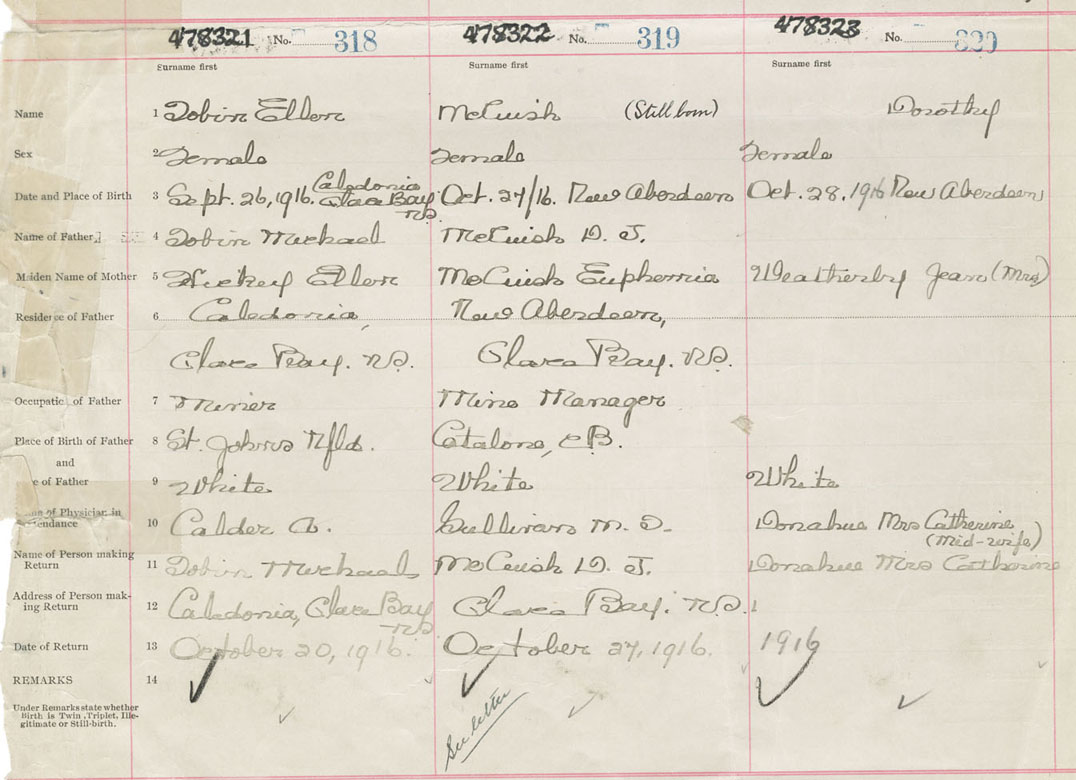 478321 No. 318 478322 No. 319 478323 No. 320
Surname first Surname first Surname first
Name 1 Tobin Ellen McCuish (Still born) Dorothy
Sex 2 Female Female Female
Date and Place of Birth 3 Sept. 26, 1916. Caledonia Glace Bay N.S. Oct. 27/16. New Aberdeen Oct. 28, 1916 New Aberdeen
Name of Father 4 Tobin Michael McCuish D. J.
Maiden Name of Mother 5 Hickey Ellen McCuish Euphemia Weatherby Jean (Mrs)
Residence of Father 6 Caledonia, New Aberdeen,
Glace Bay. N.S. Glace Bay. N.S.
Occupatic of Father 7 Miner Mine Manager
Place of Birth of Father 8 St. Johns Nfld. Catalone, C.B.
and
e of Father 9 White White White
of Physician in
endance 10 Calder A. Sullivan M. D. Donahue Mrs Catherine
(Mid-wife)
Name of Person making
Return 11 Tobin Michael McCuish D. J. Donahue Mrs Catherine
Address of Person mak-
ing Return 12 Caledonia, Glace Bay N.S. Glace Bay. N.S.
Date of Return 13 October 20, 1916. October 27, 1916. 1916
REMARKS 14
Under Remarks state whether
Birth is Twin, Triplet, Ille-
gitimate or Still-birth.
See letter